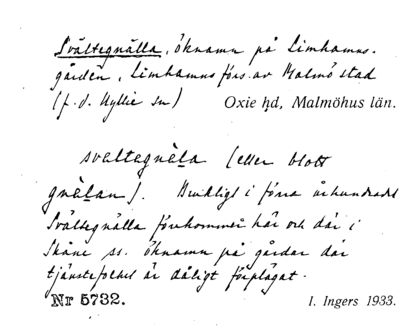 Svältegnälla, öknamn på Limhamns-
gården, Limhamns förs. av Malmö stad
(f. d. Hyllie sn) Oxie hd, Malmöhus län.
svaltegnäla (eller blott
gnälan). Brukligt i förra århundradet
Svältegnälla förekommer här och där i
Skåne ss. öknamn på gårdar där
tjänstefolket är dåligt förplägat.
Nr 5732. I. Ingers 1933.